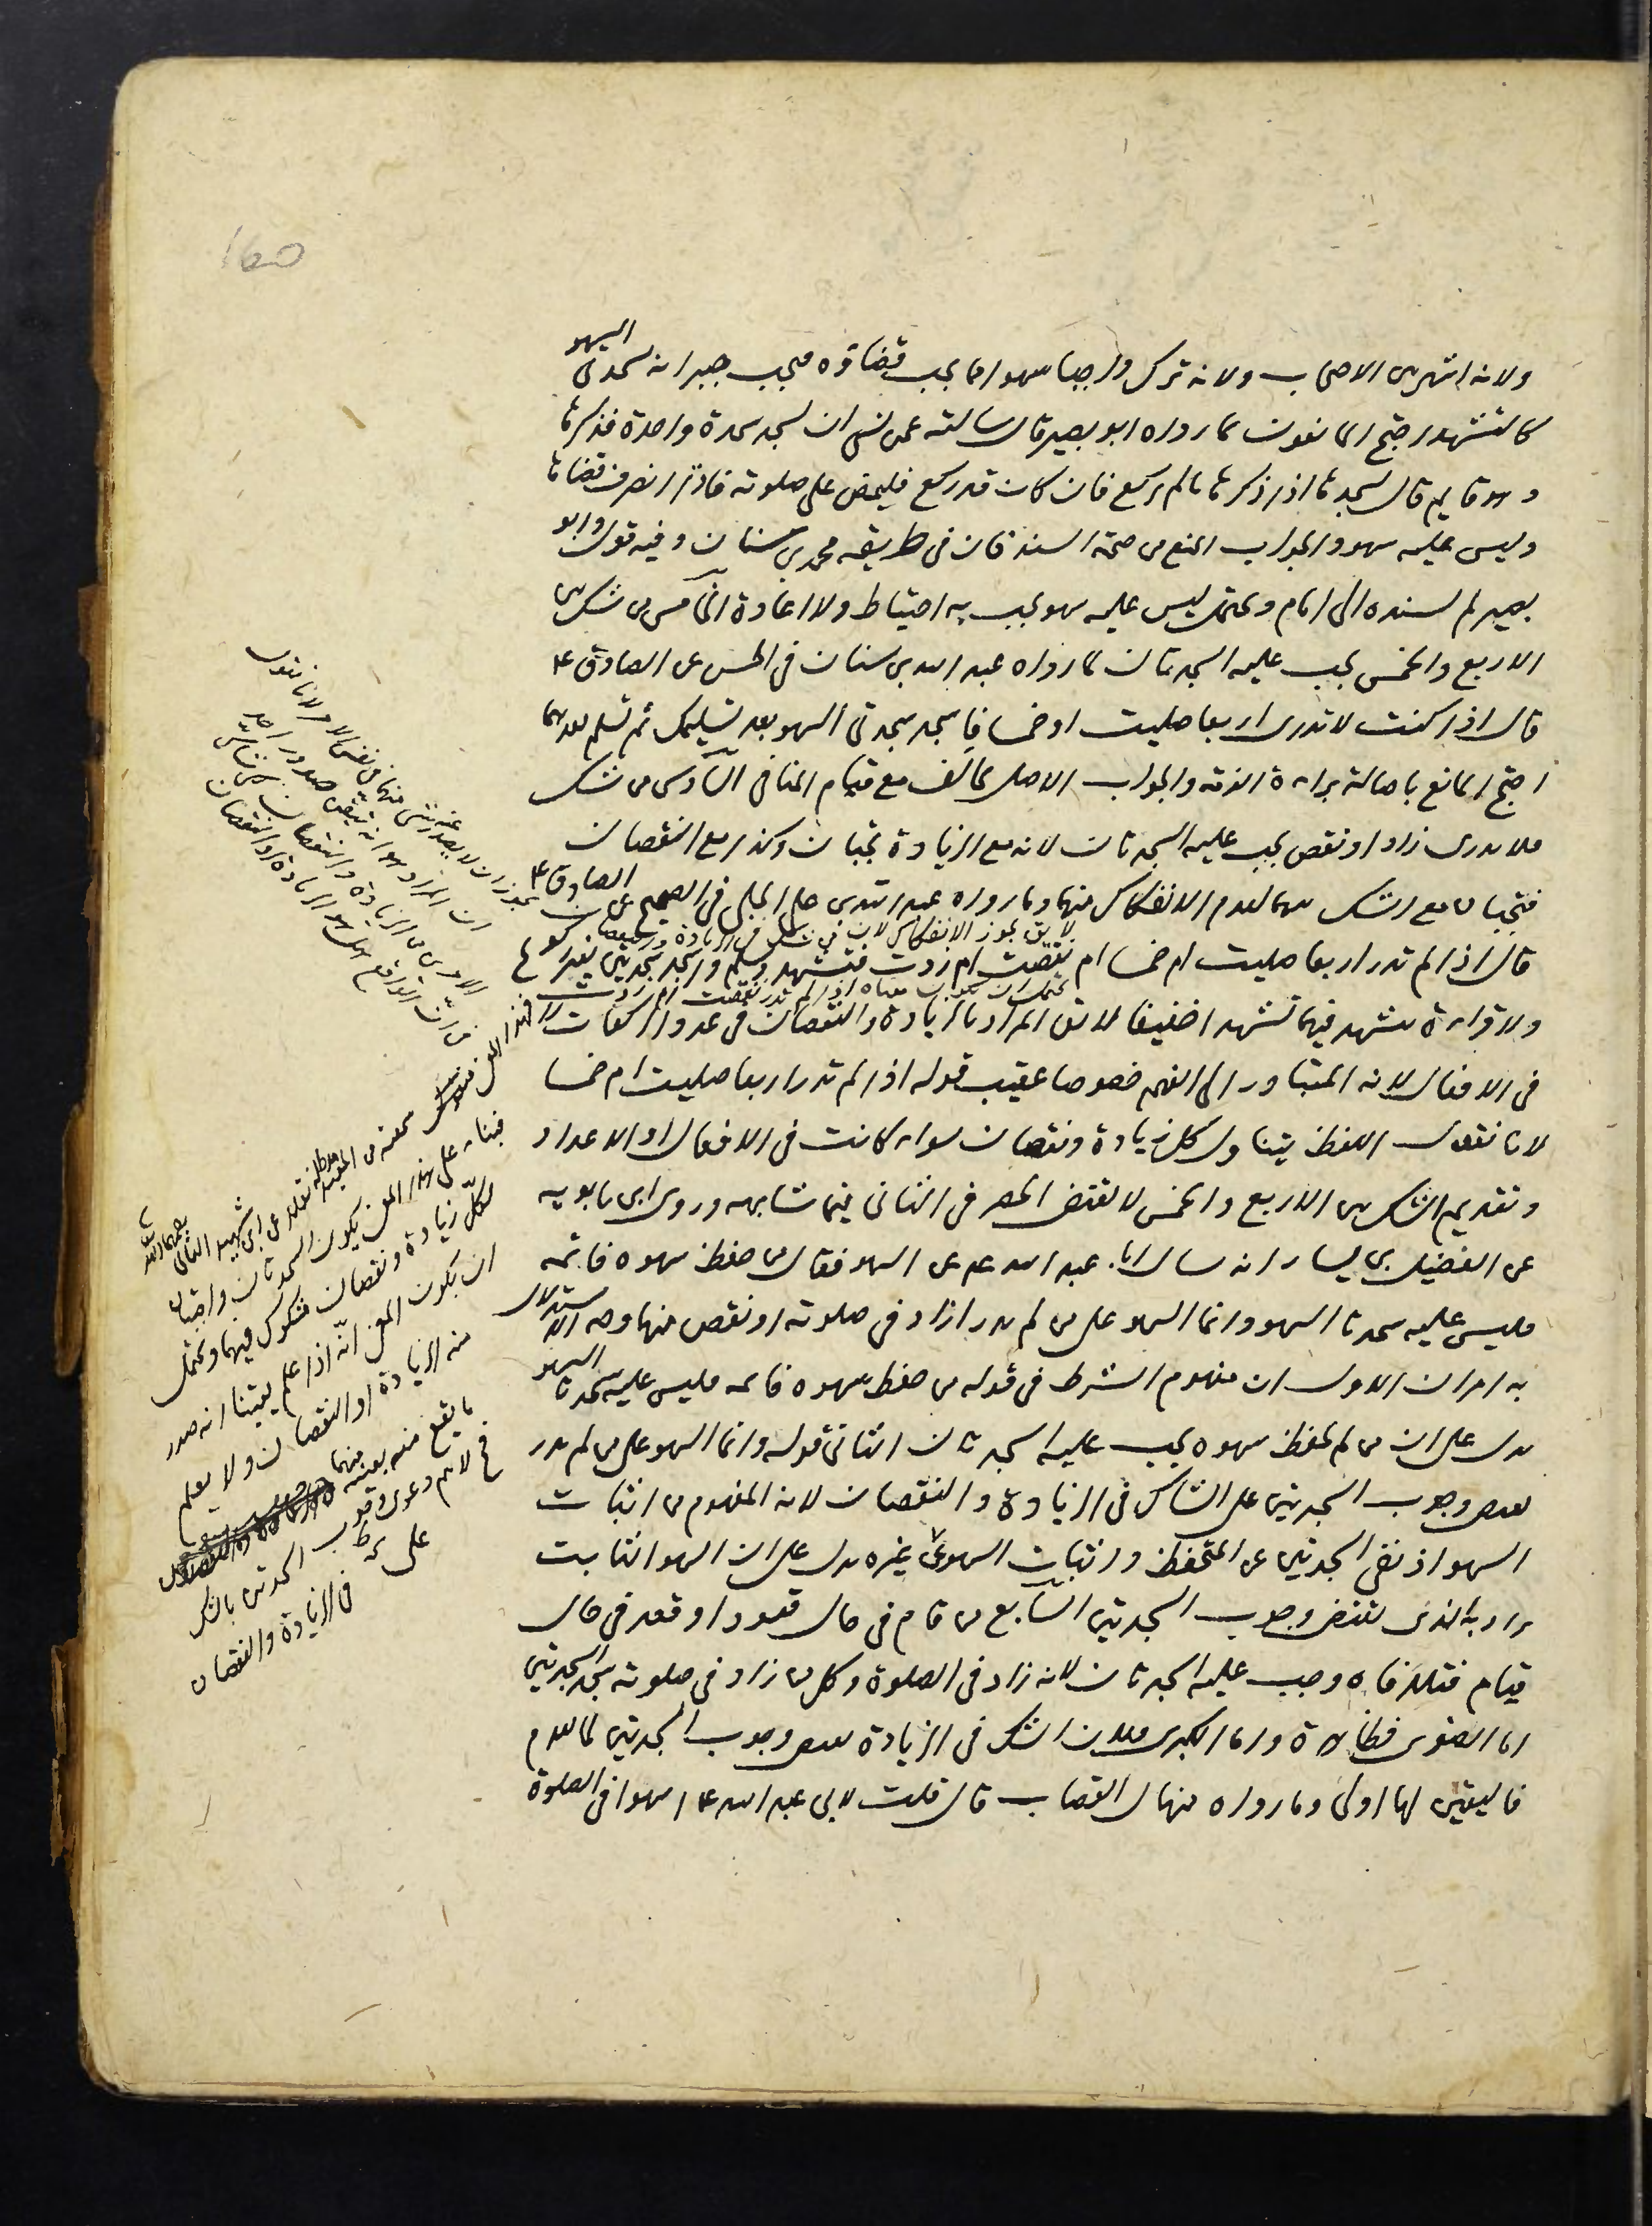 ولانه اشهر بين الاصحاب ولانه ترك واجبا سهوا مما يجب قضاؤه فيجب جبرانه بسجدتي السهو
كالتشهد احتج المانعون بما رواه ابو بصير قال سالته عمن نسى ان يسجد سجدة واحدة فذكرها
وهو قايم قال يسجدها اذا ذكرها ما لم يركع فان كان قد ركع فليمض على صلوته فاذا انصرف قضاها
وليس عليه سهو والجواب المنع من صحة السند فان في طريقه محمد بن سنان وفيه قول وابو
بصير لم يسنده الى امام ويحتمل ليس عليه سهو يجب به احتياط ولا اعادة الخامس من شك بين
الاربع والخمس يجب عليه السجدتان لما رواه عبد الله بن سنان في الحسن عن الصادق ع
قال اذا كنت لا تدرى اربعا صليت او خمسا فاسجد سجدتى السهو بعد تسليمك ثم تسلم بعدهما
احتج المانع باصالة براءة الذمة والجواب الاصل يخالف مع قيام المنافى السادس من شك
فلا يدرى زاد او نقص يجب عليه السجدتان لانه مع الزيادة تجبان وكذا مع النقصان
فتجبان مع الشك بينهما لعدم الانفكاك منهما وما رواه عبد الله بن على الحلبى في الصحيح عن الصادق ع
قال اذا لم تدر اربعا صليت ام خمسا ام نقصت ام زدت فتشهد وسلم واسجد سجدتين بغير ركوع
ولا قراءة تتشهد فيهما تشهدا خفيفا لا يق المراد بالزيادة والنقصان في عدد الركعات لا
في الافعال لانه المتبادر الى الفهم خصوصا عقيب قوله اذا لم تدر اربعا صليت ام خمسا
لانا نقول اللفظ يتناول كل زيادة ونقصان سواء كانت في الافعال او الاعداد
وتقديم الشك بين الاربع والخمس لا يقتضى الحصر في الثانى فيما شابهه وروى ابن بابويه
عن الفضيل بن يسار انه سال ابا عبد الله ع عن السهو فقال من حفظ سهوه فاتمه
فليس عليه سجدتا السهو وانما السهو على من لم يدر ازاد في صلوته او نقص منها وجه الاستدلال
به امران الاول ان مفهوم الشرط في قوله من حفظ سهوه فاتمه فليس عليه سجدتا السهو
يدل على ان من لم يحفظ سهوه يجب عليه السجدتان الثانى قوله وانما السهو على من لم يدر
يقتضى وجوب السجدتين على الشاك في الزيادة والنقصان لانه المفهوم من اثبات
السهو اذ نفى السجدتين عن المتحفظ واثبات السهو على غيره يدل على ان السهو الثابت
يراد به الذى يقتضى وجوب السجدتين السابع من قام في حال قعود او قعد في حال
قيام فتلافاه وجب عليه السجدتان لانه زاد في الصلوة وكل من زاد في صلوته سجد السجدتين
اما الصغرى فظاهرة واما الكبرى فلان الشك في الزيادة يقتضى وجوب السجدتين لما تقدم
فاليقين لها اولى وما رواه منهال القصاب قال قلت لابى عبد الله ع اسهوا في الصلوة
لا يق يجوز الانفكاك لان
يحتمل ان يكون معناه اذا لم تدر نقصت ام زدت
فبناء على هذا المعنى يكون السجدتان واجبتان
لكل زيادة ونقصان مشكوك فيهما ويحتمل
ان يكون المعنى انه اذا علم يقينا انه صدر
منه الزيادة او النقصان ولا يعلم
ما يقع منه بعينه منهما
فح لا يتم دعوى وجوب السجدتين بالشك
على
في الزيادة والنقصان